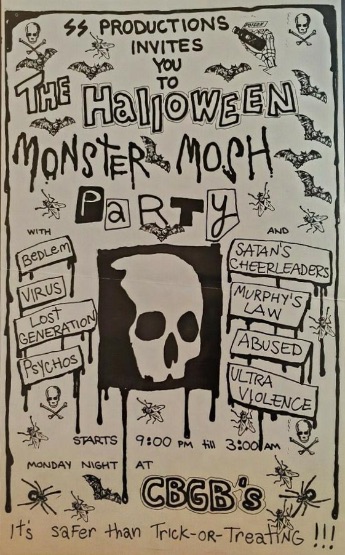 SS PRODUCTIONS
INVITES
YOU
TO
THE HALLOWEEN
MONSTER MOSH
PARTY
WITH
AND
BEDLEM
VIRUS
LOST
GENERATION
PSYCHOS
SATAN'S
CHEERLEADERS
MURPHY'S
LAW
ABUSED
ULTRA
VIOLENCE
STARTS 9:00 PM till 3:00 AM
MONDAY NIGHT AT
CBGB's
It's safer than Trick-or-Treating!!!